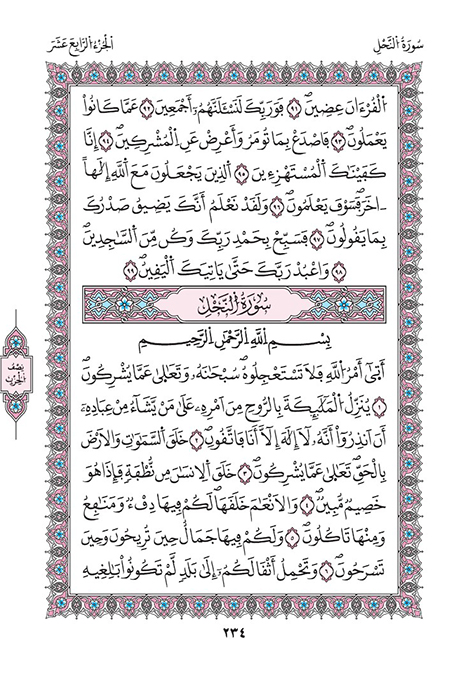 سُورَةُ النَّحْلِ
الْجُزْءُ الرَّابِعَ عَشَرَ
اَلْقُرْءَانَ عِضِينَ ٩١ فَوَرَبِّكَ لَنَسْـَٔلَنَّهُمُۥٓ أَجْمَعِينَ ٩٢ عَمَّا كَانُواْ
يَعْمَلُونَ ٩٣ فَاصْدَعْ بِمَا تُومَرُ وَأَعْرِضْ عَنِ اِلْمُشْرِكِينَ ٩٤ إِنَّا
كَفَيْنَٰكَ اَلْمُسْتَهْزِءِينَ ٩٥ اَلذِينَ يَجْعَلُونَ مَعَ اَللَّهِ إِلَٰهاً
ـاخَرَ فَسَوْفَ يَعْلَمُونَ ٩٦ وَلَقَدْ نَعْلَمُ أَنَّكَ يَضِيقُ صَدْرُكَ
بِمَا يَقُولُونَ ٩٧ فَسَبِّحْ بِحَمْدِ رَبِّكَ وَكُن مِّنَ اَلسَّٰجِدِينَ
٩٨ وَاعْبُدْ رَبَّكَ حَتَّىٰ يَاتِيَكَ اَلْيَقِينُ ٩٩
سُورَةُ النَّحْلِ
بِسْمِ اِللَّهِ اِلرَّحْمَٰنِ اِلرَّحِيمِ
أَتَىٰٓ أَمْرُ اُللَّهِ فَلَا تَسْتَعْجِلُوهُ سُبْحَٰنَهُۥ وَتَعَٰلَىٰ عَمَّا يُشْرِكُونَ
١ يُنَزِّلُ اُلْمَلَٰٓئِكَةَ بِالرُّوحِ مِنَ اَمْرِهِۦ عَلَىٰ مَنْ يَّشَآءُ مِنْ عِبَادِهِۦٓ
أَنَ اَنذِرُوٓاْ أَنَّهُۥ لَآ إِلَٰهَ إِلَّآ أَنَا فَاتَّقُونِ ٢ خَلَقَ اَلسَّمَٰوَٰتِ وَالَارْضَ
بِالْحَقِّ تَعَٰلَىٰ عَمَّا يُشْرِكُونَ ٣ خَلَقَ اَلِانسَٰنَ مِن نُّطْفَةٍ فَإِذَا هُوَ
خَصِيمٌ مُّبِينٌ ٤ وَالَانْعَٰمَ خَلَقَهَا لَكُمْ فِيهَا دِفْءٌ وَمَنَٰفِعُ
وَمِنْهَا تَاكُلُونَ ٥ وَلَكُمْ فِيهَا جَمَالٌ حِينَ تُرِيحُونَ وَحِينَ
تَسْرَحُونَ ٦ وَتَحْمِلُ أَثْقَالَكُمُۥٓ إِلَىٰ بَلَدٍ لَّمْ تَكُونُواْ بَٰلِغِيهِ
نِصْف
الْحِزْب
٢٣٤